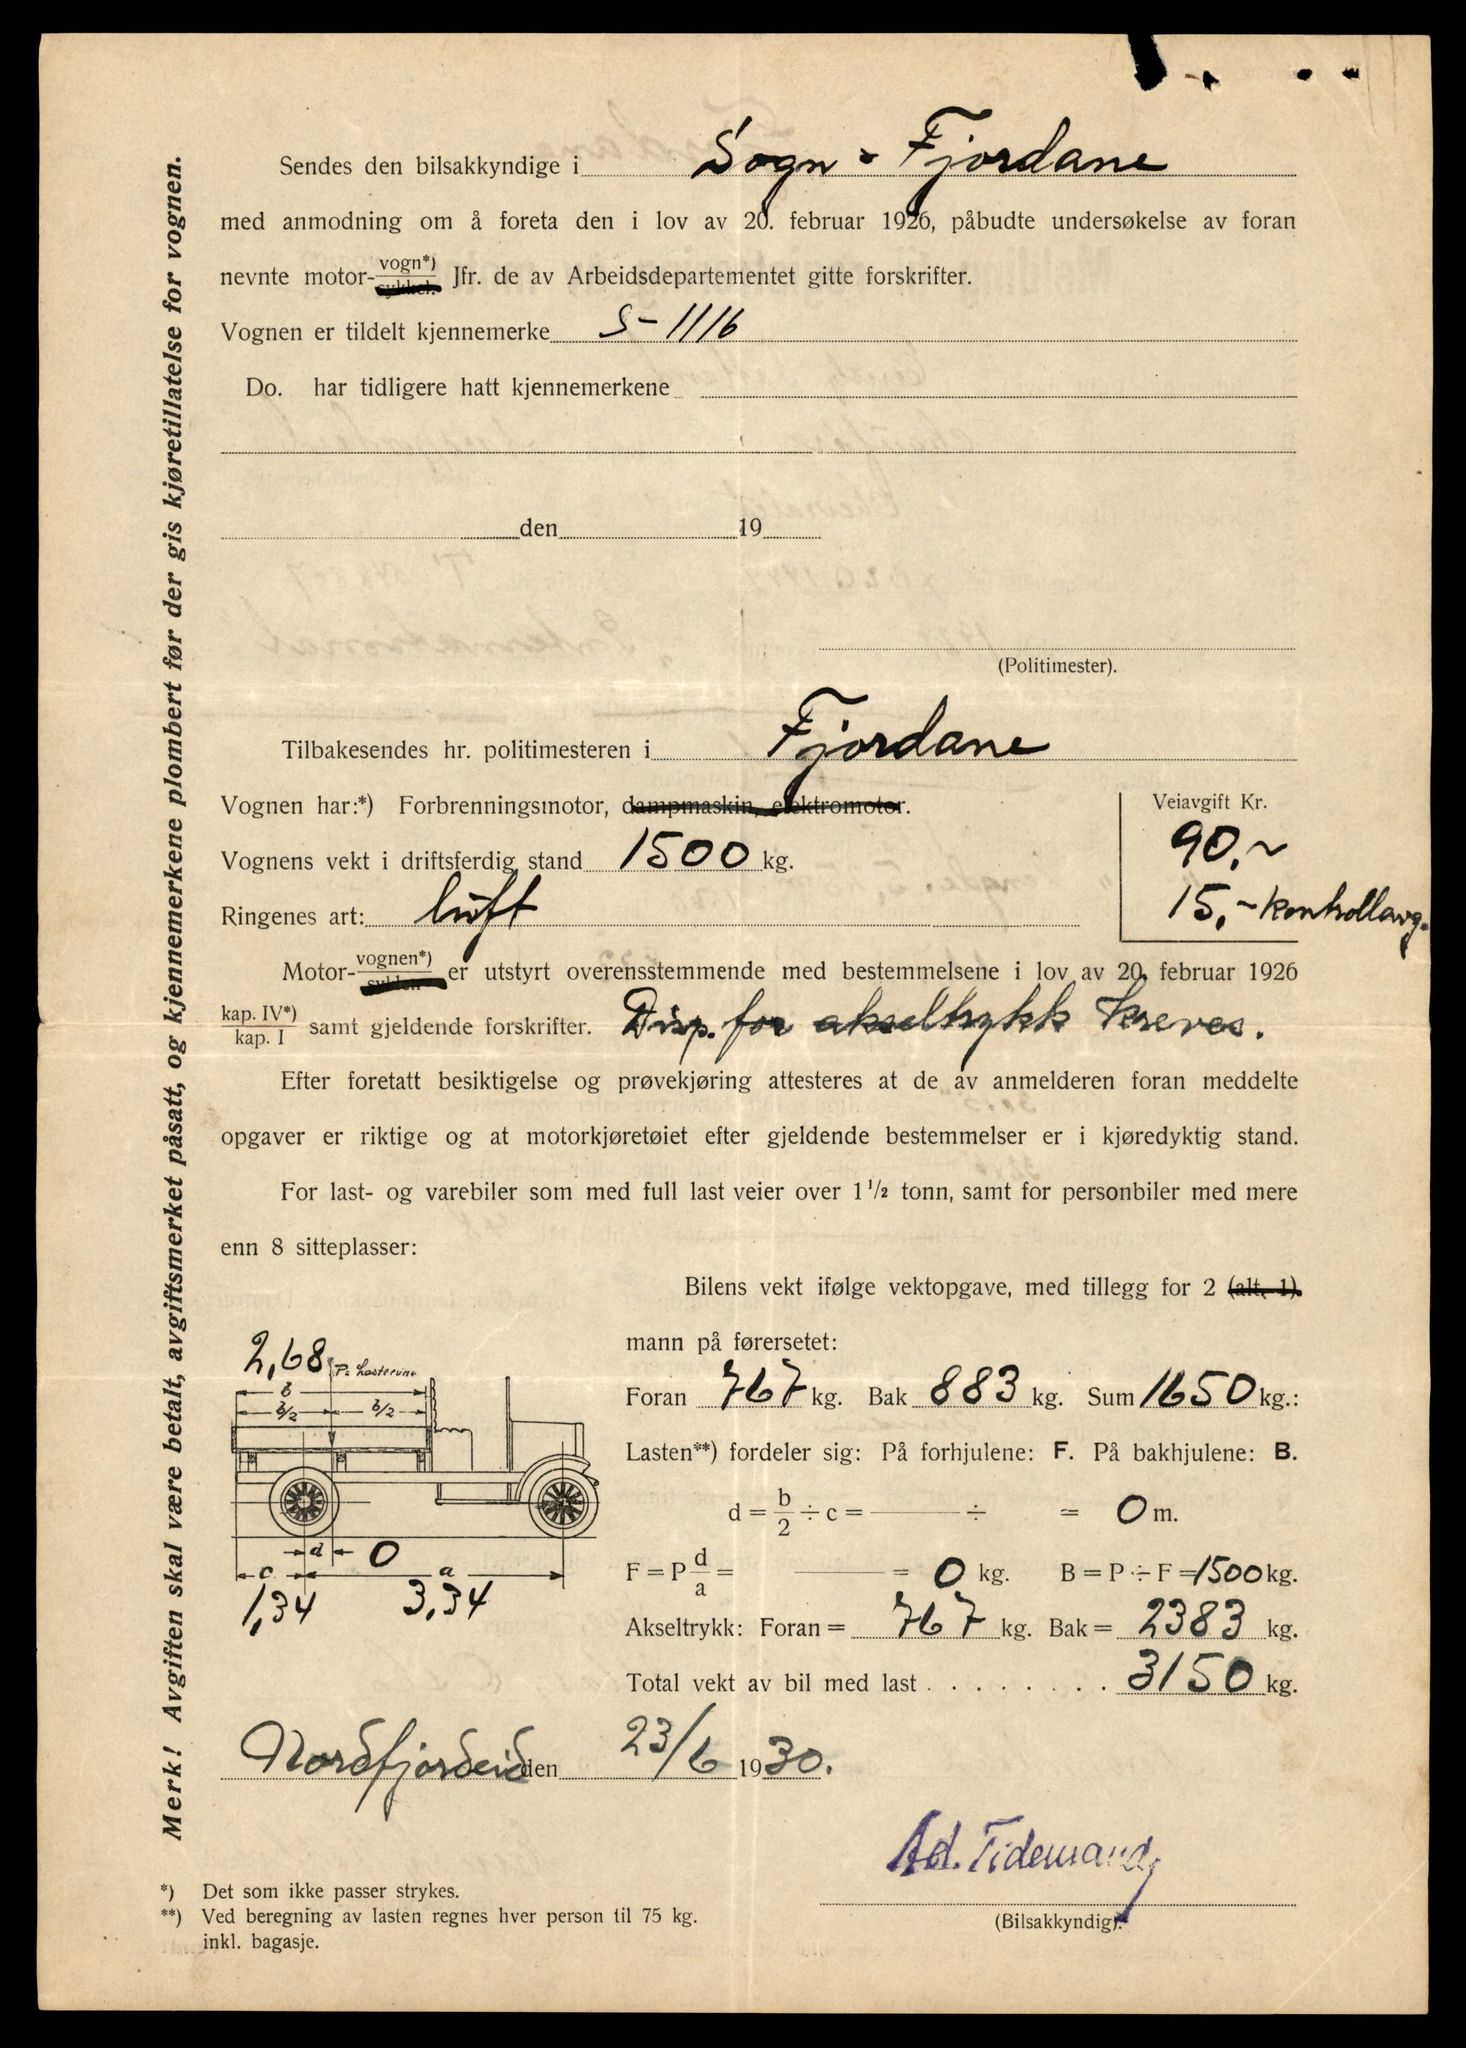 Sendes den bilsakkyndige i Sogn - Fjordane
med anmodning om å foreta den i lov av 20. februar 1926, påbudte undersøkelse av foran
nevnte motor- vogn*) sykkel. Jfr. de av Arbeidsdepartementet gitte forskrifter.
Vognen er tildelt kjennemerke S-1116
Do. har tidligere hatt kjennemerkene
den 19
(Politimester).
Tilbakesendes hr. politimesteren i Fjordane
Vognen har:*) Forbrenningsmotor, dampmaskin, elektromotor.
Veiavgift Kr.
90,-
Vognens vekt i driftsferdig stand 1500 kg.
15,- kontrollavg.
Ringenes art: luft
Motor- vognen*) sykelen er utstyrt overensstemmende med bestemmelsene i lov av 20. februar 1926
kap. IV*) kap. I samt gjeldende forskrifter. Disp. for akseltrykk kreves.
Efter foretatt besiktigelse og prøvekjøring attesteres at de av anmelderen foran meddelte
opgaver er riktige og at motorkjøretøiet efter gjeldende bestemmelser er i kjøredyktig stand.
For last- og varebiler som med full last veier over 1 1/2 tonn, samt for personbiler med mere
enn 8 sitteplasser:
Bilens vekt ifølge vektopgave, med tillegg for 2 (alt. 1).
mann på førersetet:
Foran 767 kg. Bak 883 kg. Sum 1650 kg.:
Lasten**) fordeler sig: På forhjulene: F. På bakhjulene: B.
d = b/2 ÷ c = ÷ = 0 m.
F = P d/a = = 0 kg. B = P ÷ F = 1500 kg.
Akseltrykk: Foran = 767 kg. Bak = 2383 kg.
Total vekt av bil med last . . . . . . . . 3150 kg.
2,68
P = Lastevine
b
b/2 b/2
d 0
c a
1,34 3,34
Nordfjordeid den 23/6 1930.
Ad. Tidemand
(Bilsakkyndig).
*) Det som ikke passer strykes.
**) Ved beregning av lasten regnes hver person til 75 kg.
inkl. bagasje.
Merk! Avgiften skal være betalt, avgiftsmerket påsatt, og kjennemerkene plombert før der gis kjøretillatelse for vognen.